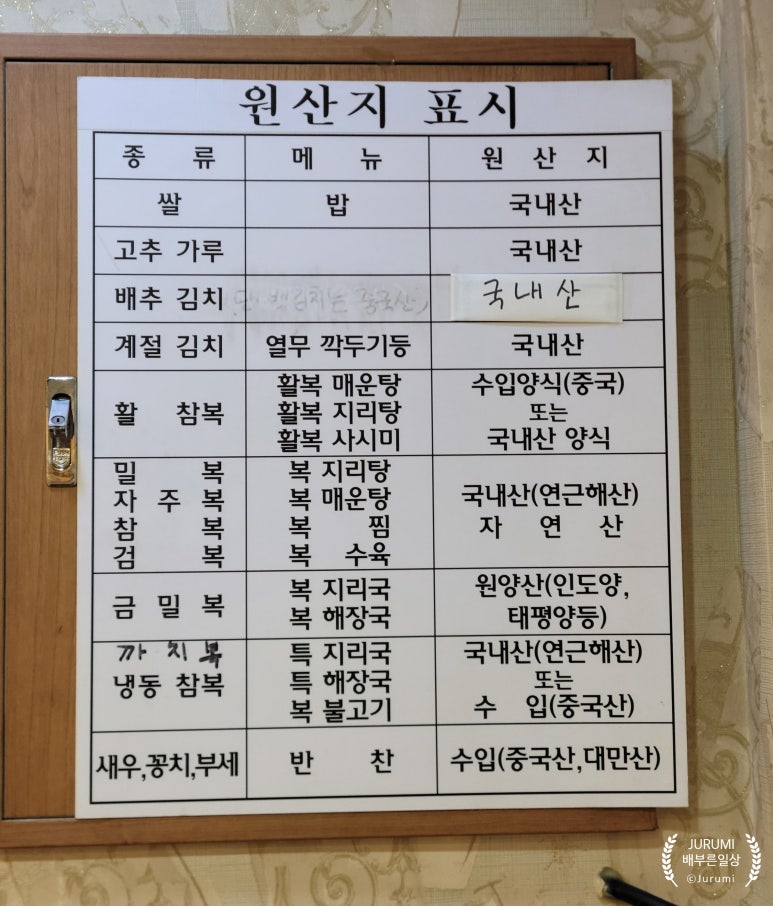 원산지 표시
종 류 메 뉴 원 산 지
쌀 밥 국내산
고추 가루 국내산
배추 김치 (단, 백김치는 중국산) 국내산
계절 김치 열무 깍두기등 국내산
활 참복
활복 매운탕
활복 지리탕
활복 사시미
수입양식(중국)
또는
국내산 양식
밀 복
자 주 복
참 복
검 복
복 지리탕
복 매운탕
복 찜
복 수육
국내산(연근해산)
자 연 산
금 밀 복
복 지리국
복 해장국
원양산(인도양,
태평양등)
까치복
냉동 참복
특 지리국
특 해장국
복 불고기
국내산(연근해산)
또는
수 입(중국산)
새우,꽁치,부세 반 찬 수입(중국산,대만산)
JURUMI
배부른일상
©Jurumi